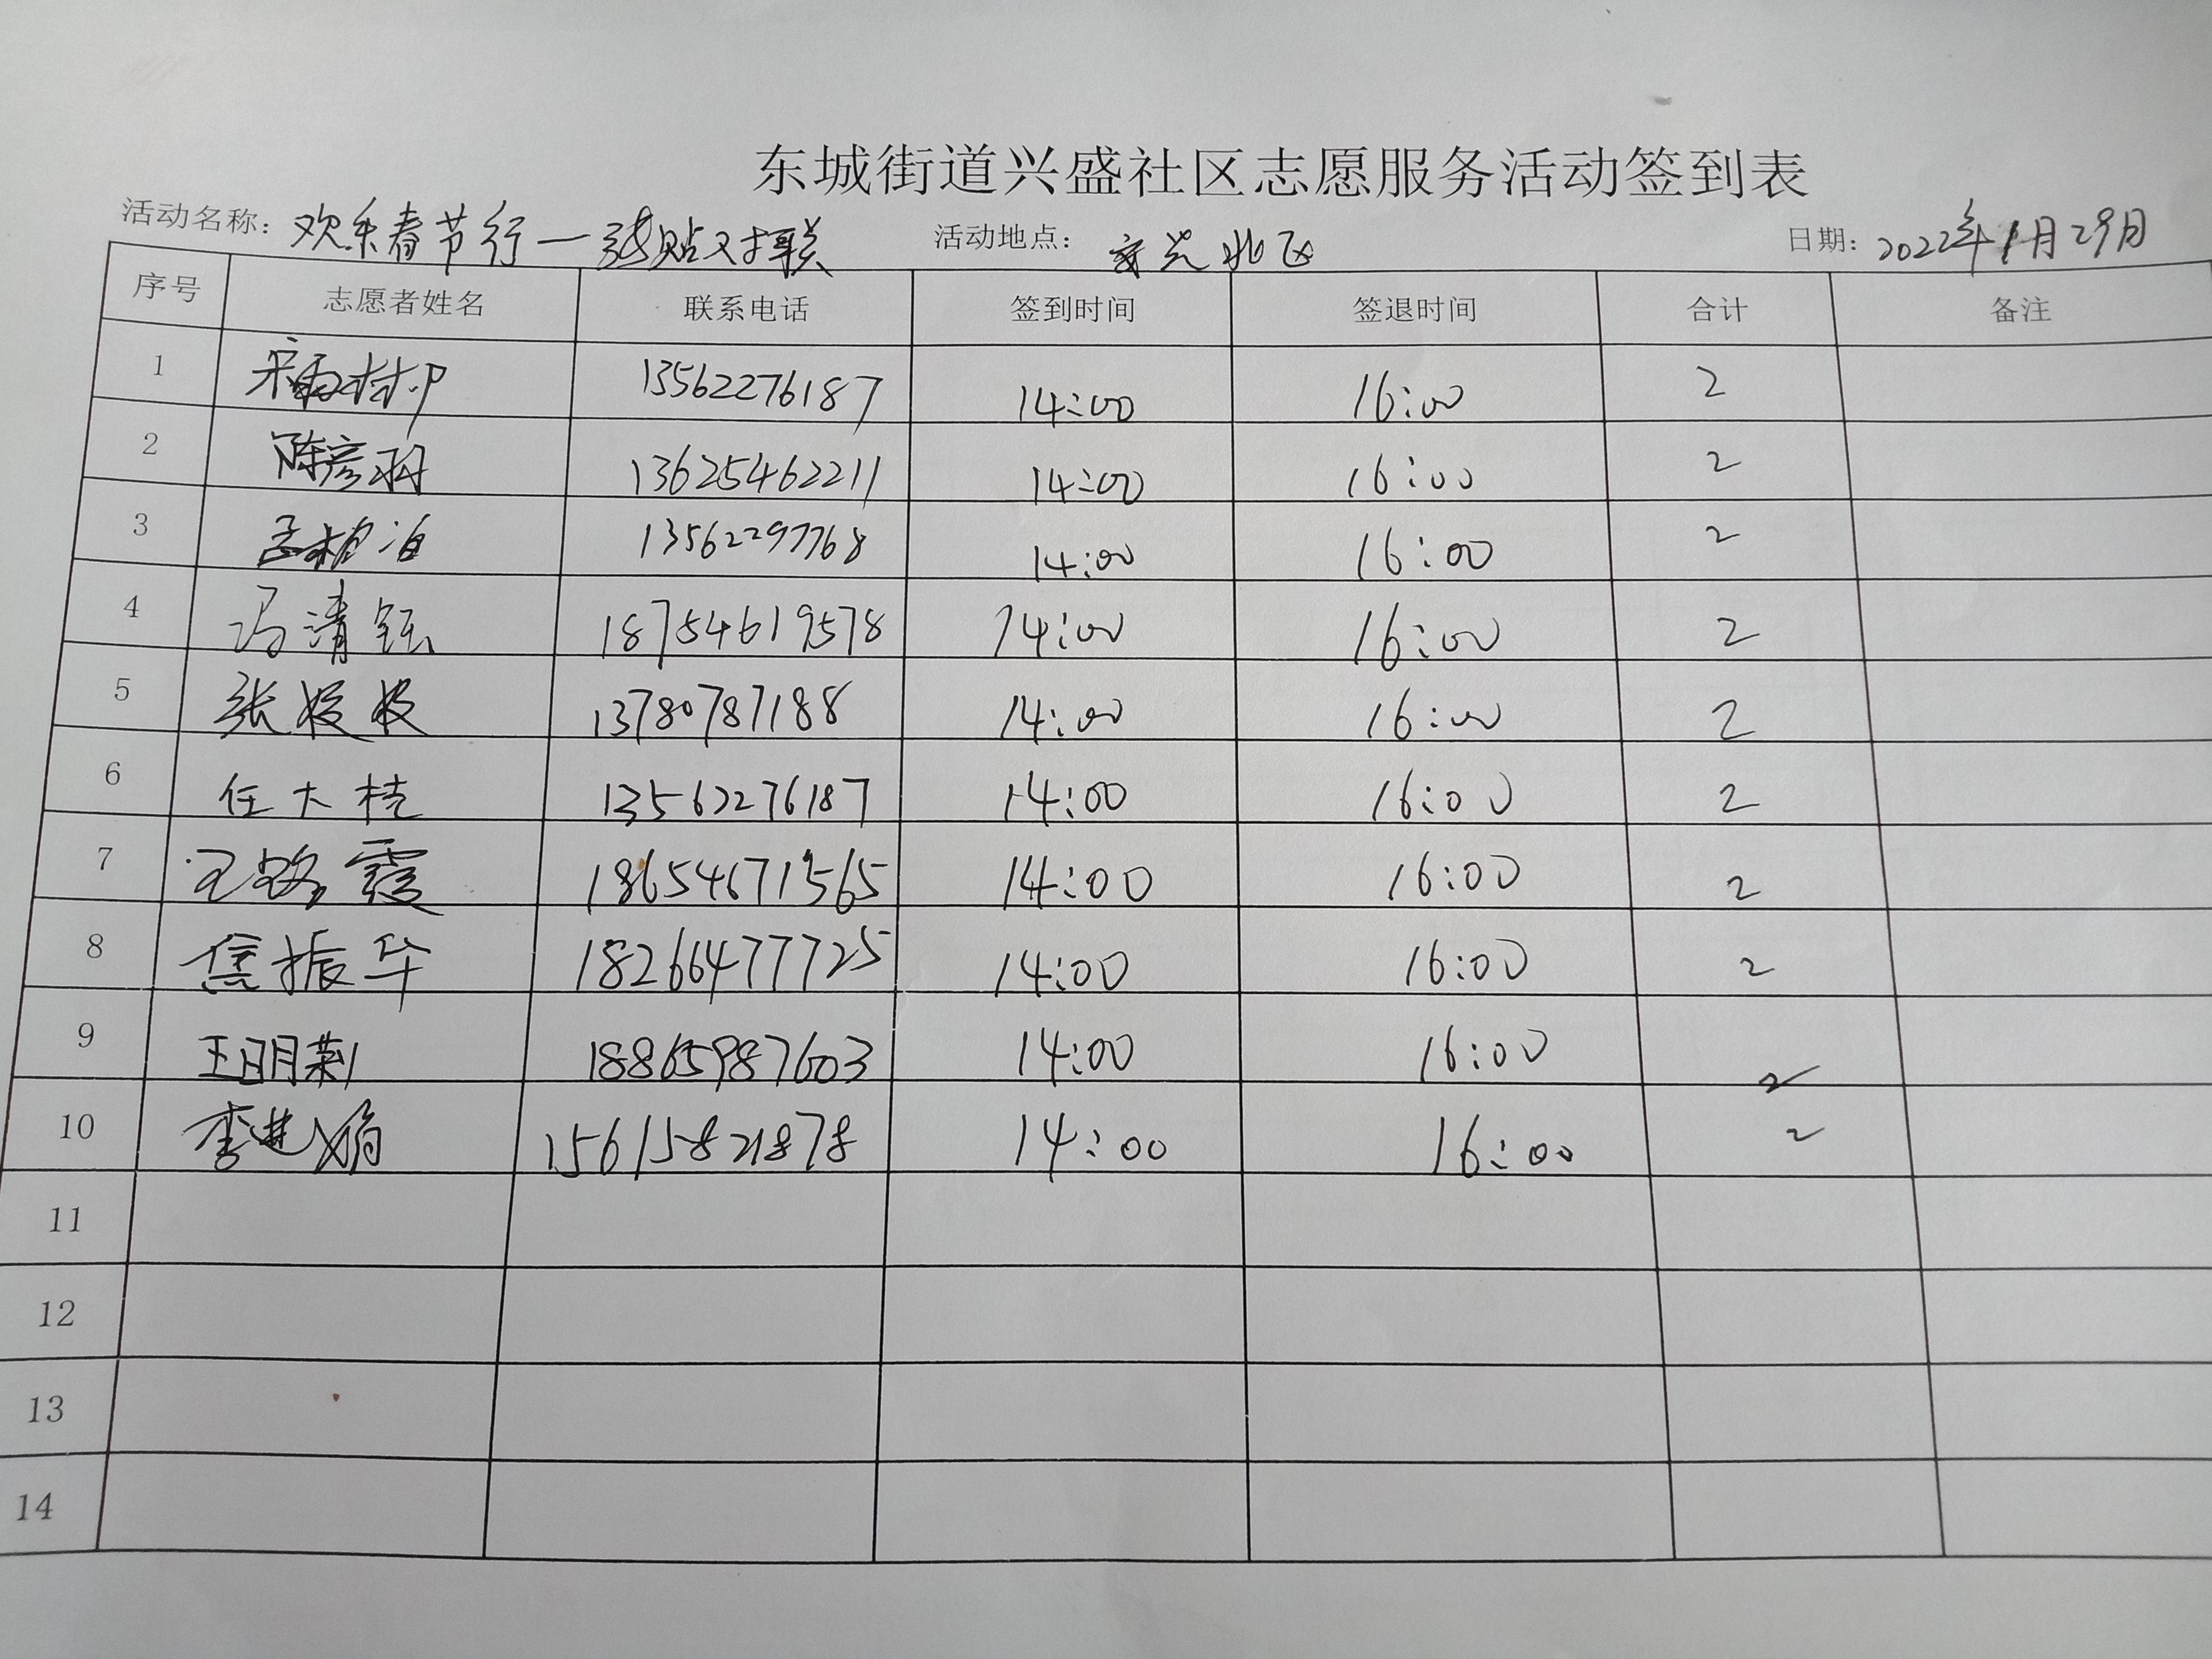 东城街道兴盛社区志愿服务活动签到表
活动名称: 欢乐春节行一张贴对联 活动地点: 北区 日期: 2022年1月29日
序号 志愿者姓名 联系电话 签到时间 签退时间 合计 备注
1 13562276187 14:00 16:00 2
2 陈彦羽 13625462211 14:00 16:00 2
3 13562297768 14:00 16:00 2
4 冯清钰 18754619578 14:00 16:00 2
5 张 13780787188 14:00 16:00 2
6 任大桂 13562276187 14:00 16:00 2
7 霞 18654671565 14:00 16:00 2
8 焦振华 18266477725 14:00 16:00 2
9 王明荣 18865987603 14:00 16:00 2
10 李进娟 15615821878 14:00 16:00 2
11
12
13
14